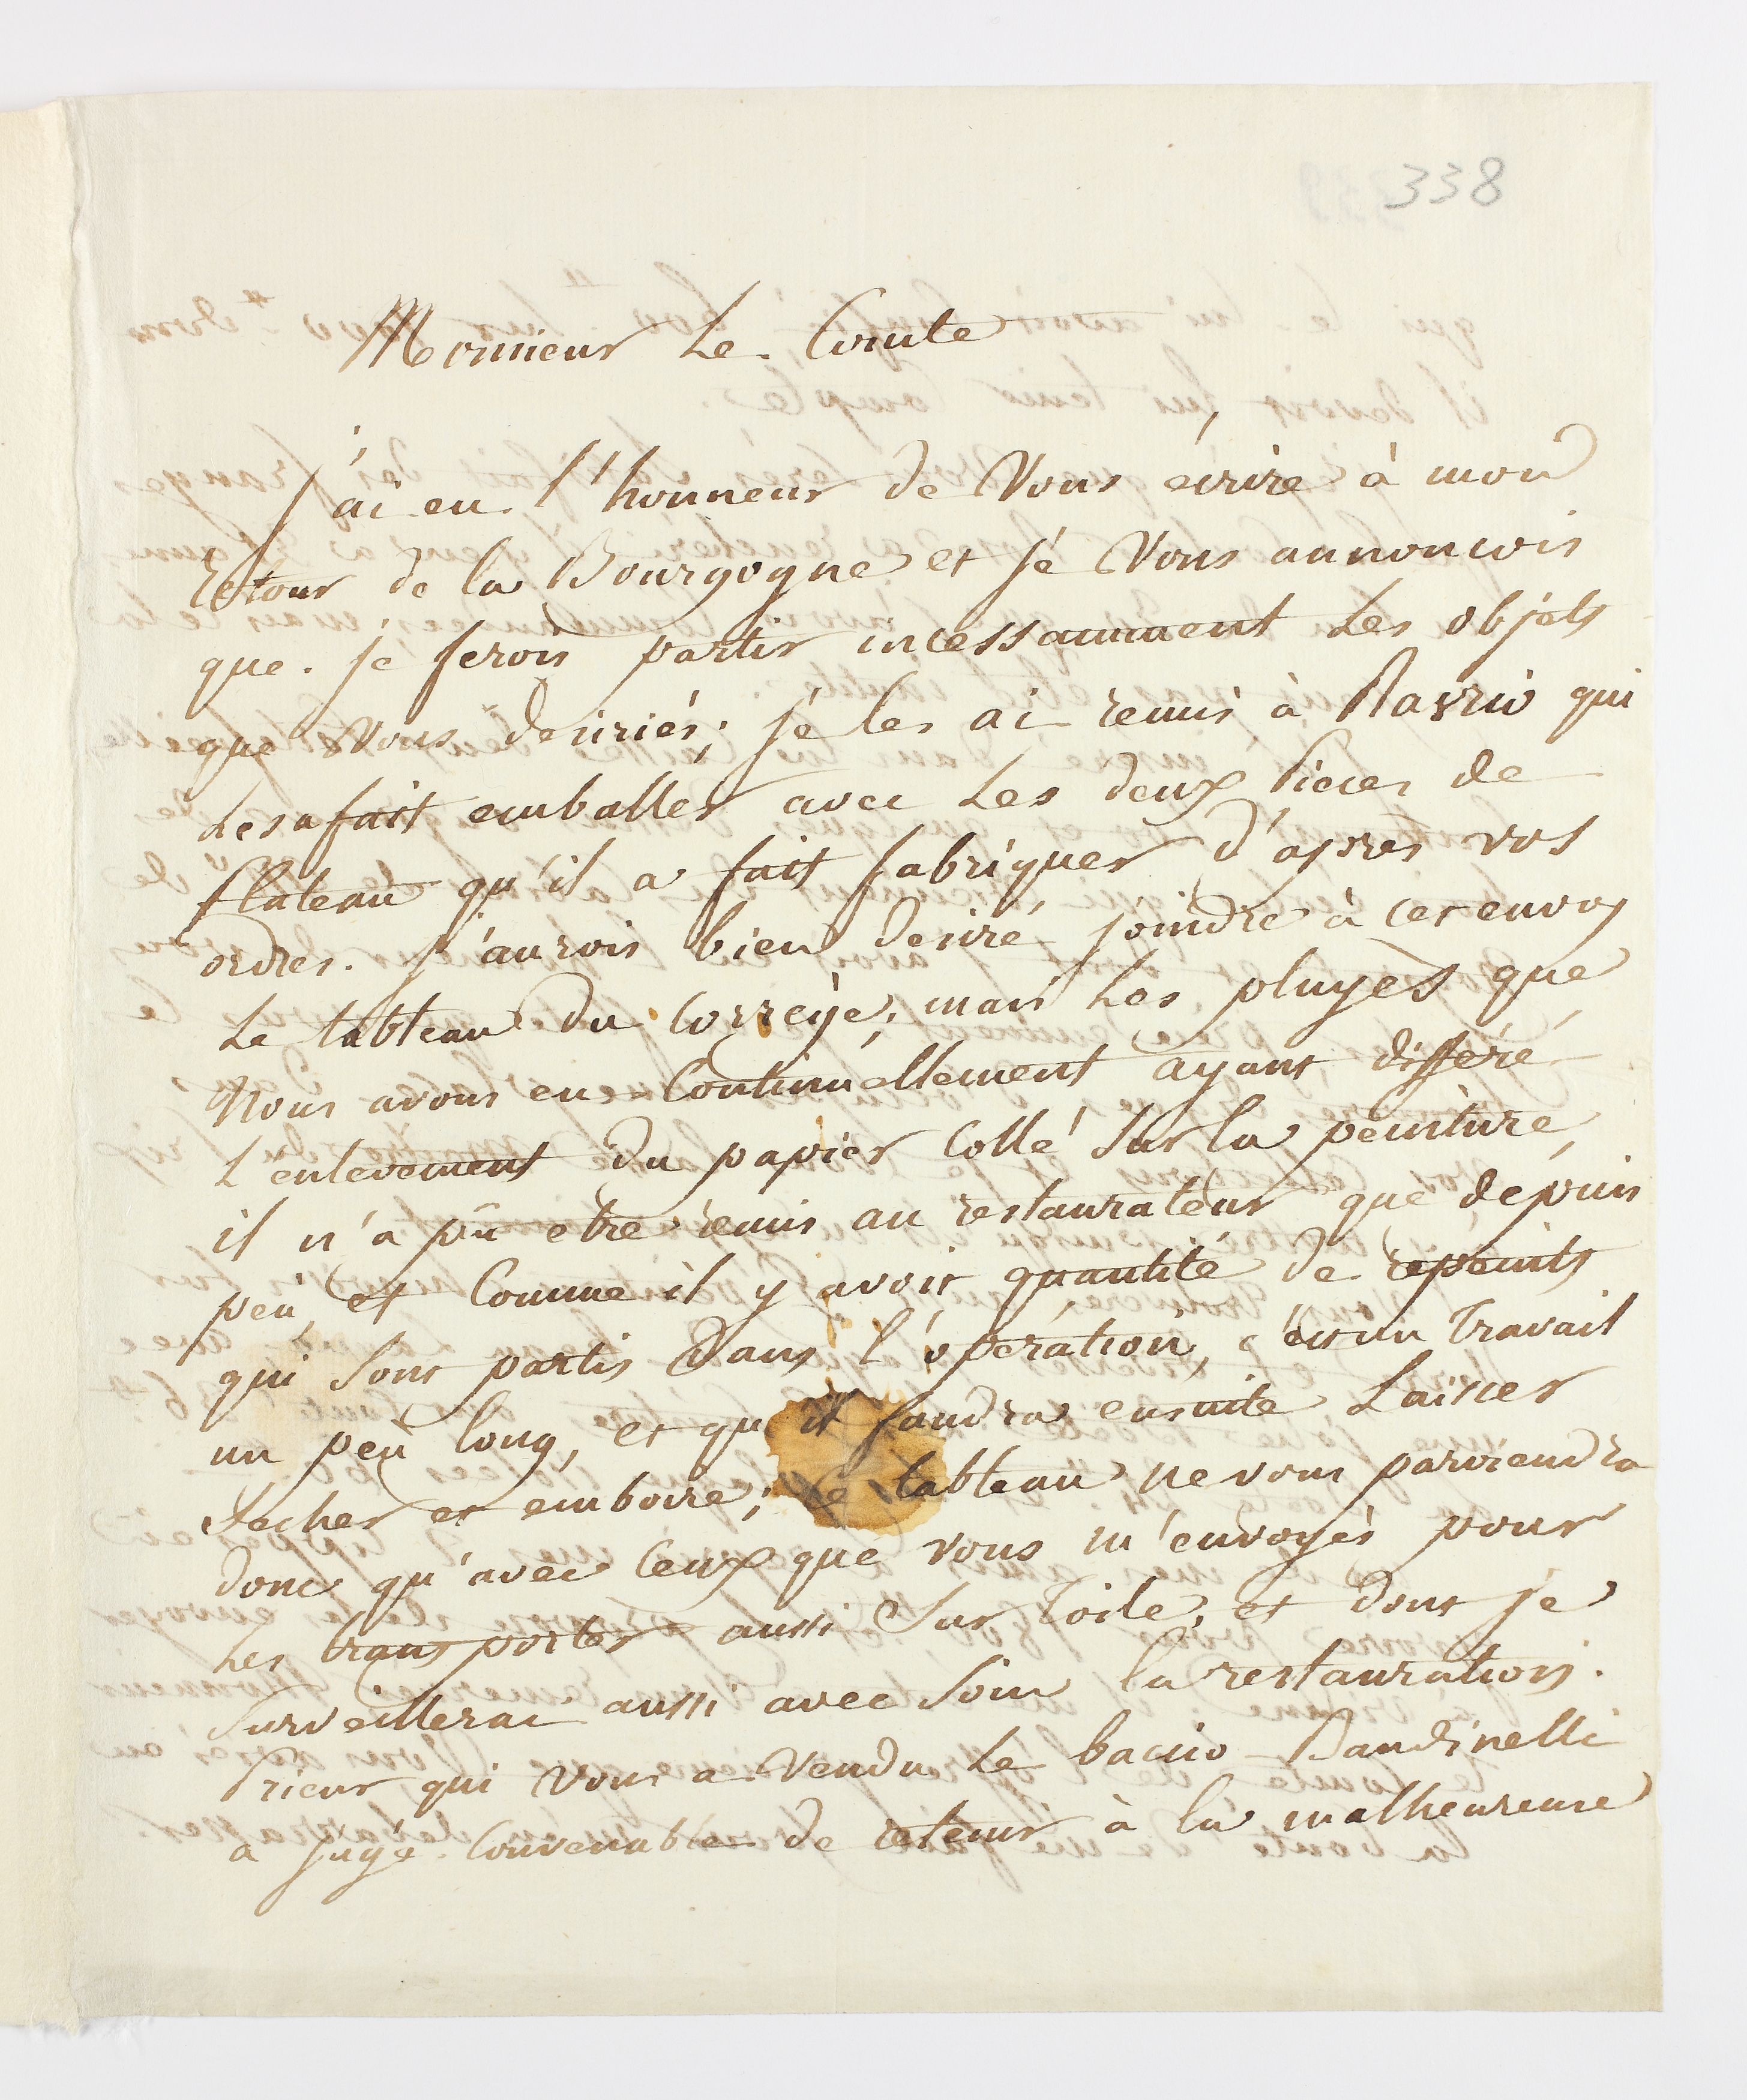 338
Monsieur Le Comte
J'ai eu l'honneur de Vous écrire à mon
retour de la Bourgogne et Je Vous annoncois
que Je ferois partir incessamment Les objets
que Vous desiriés; Je les ai remis à Ravrio qui
Les a fait emballer avec Les deux Pieces de
Plateau qu'il a fait fabriquer d'apres vos
ordres. J'aurois bien desiré joindre à cet envoy
Le tableau du Correge; mais Les pluyes que
Nous avons eu Continuellement ayant différé
L'enlevement du papier Collé Sur la peinture,
il n'a pû etre remis au restaurateur que depuis
peu, et Comme il y avoit quantité de repeints
qui Sont partis Dans l'opération, c'est un Travail
un peu long, et qu'il faudra ensuite Laisser
Secher et emboire; Ce tableau ne vous parviendra
donc qu'avec Ceux que vous m'envoyés pour
Les transporter aussi Sur Toile, et dont je
Surveillerai aussi avec Soin la restauration.
Prieur qui Vous a Vendu Le bacio Bandinelli
a Jugé Convenable de retenir à la malheureuse